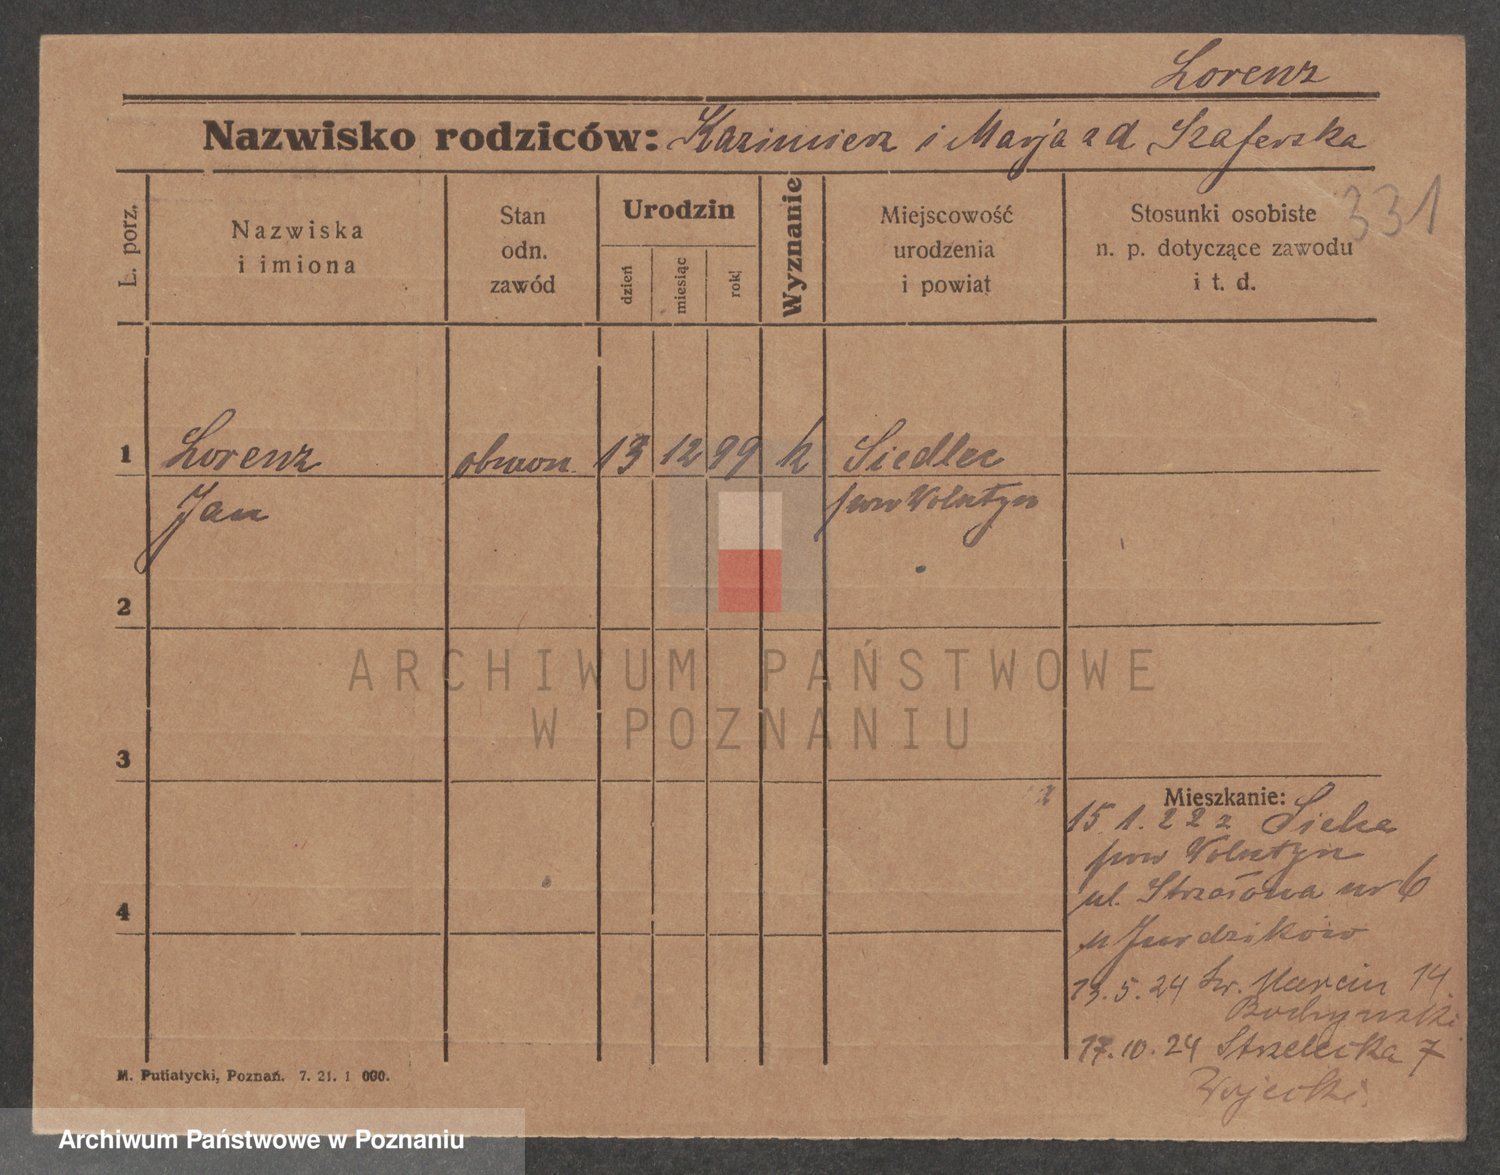 Lorenz
Nazwisko rodziców: Kazimierz i Marja z d Szaferska
331
L. porz.
Nazwiska
i imiona
Stan
odn.
zawód
Urodzin
dzień
miesiąc
rok
Wyznanie
Miejscowość
urodzenia
i powiat
Stosunki osobiste
n. p. dotyczące zawodu
i t. d.
1
Lorenz
13 12 99 k Siedlec
Jan
pow Wolsztyn
2
ARCHIWUM PAŃSTWOWE
W POZNANIU
3
Mieszkanie:
15.1.22 z
pow Wolsztyn
ul. nr 6
u
4
13.5.24 Św. Marcin 14
17.10.24 Strzelecka 7
M. Putiatycki, Poznań. 7. 21. 1 000.
Archiwum Państwowe w Poznaniu